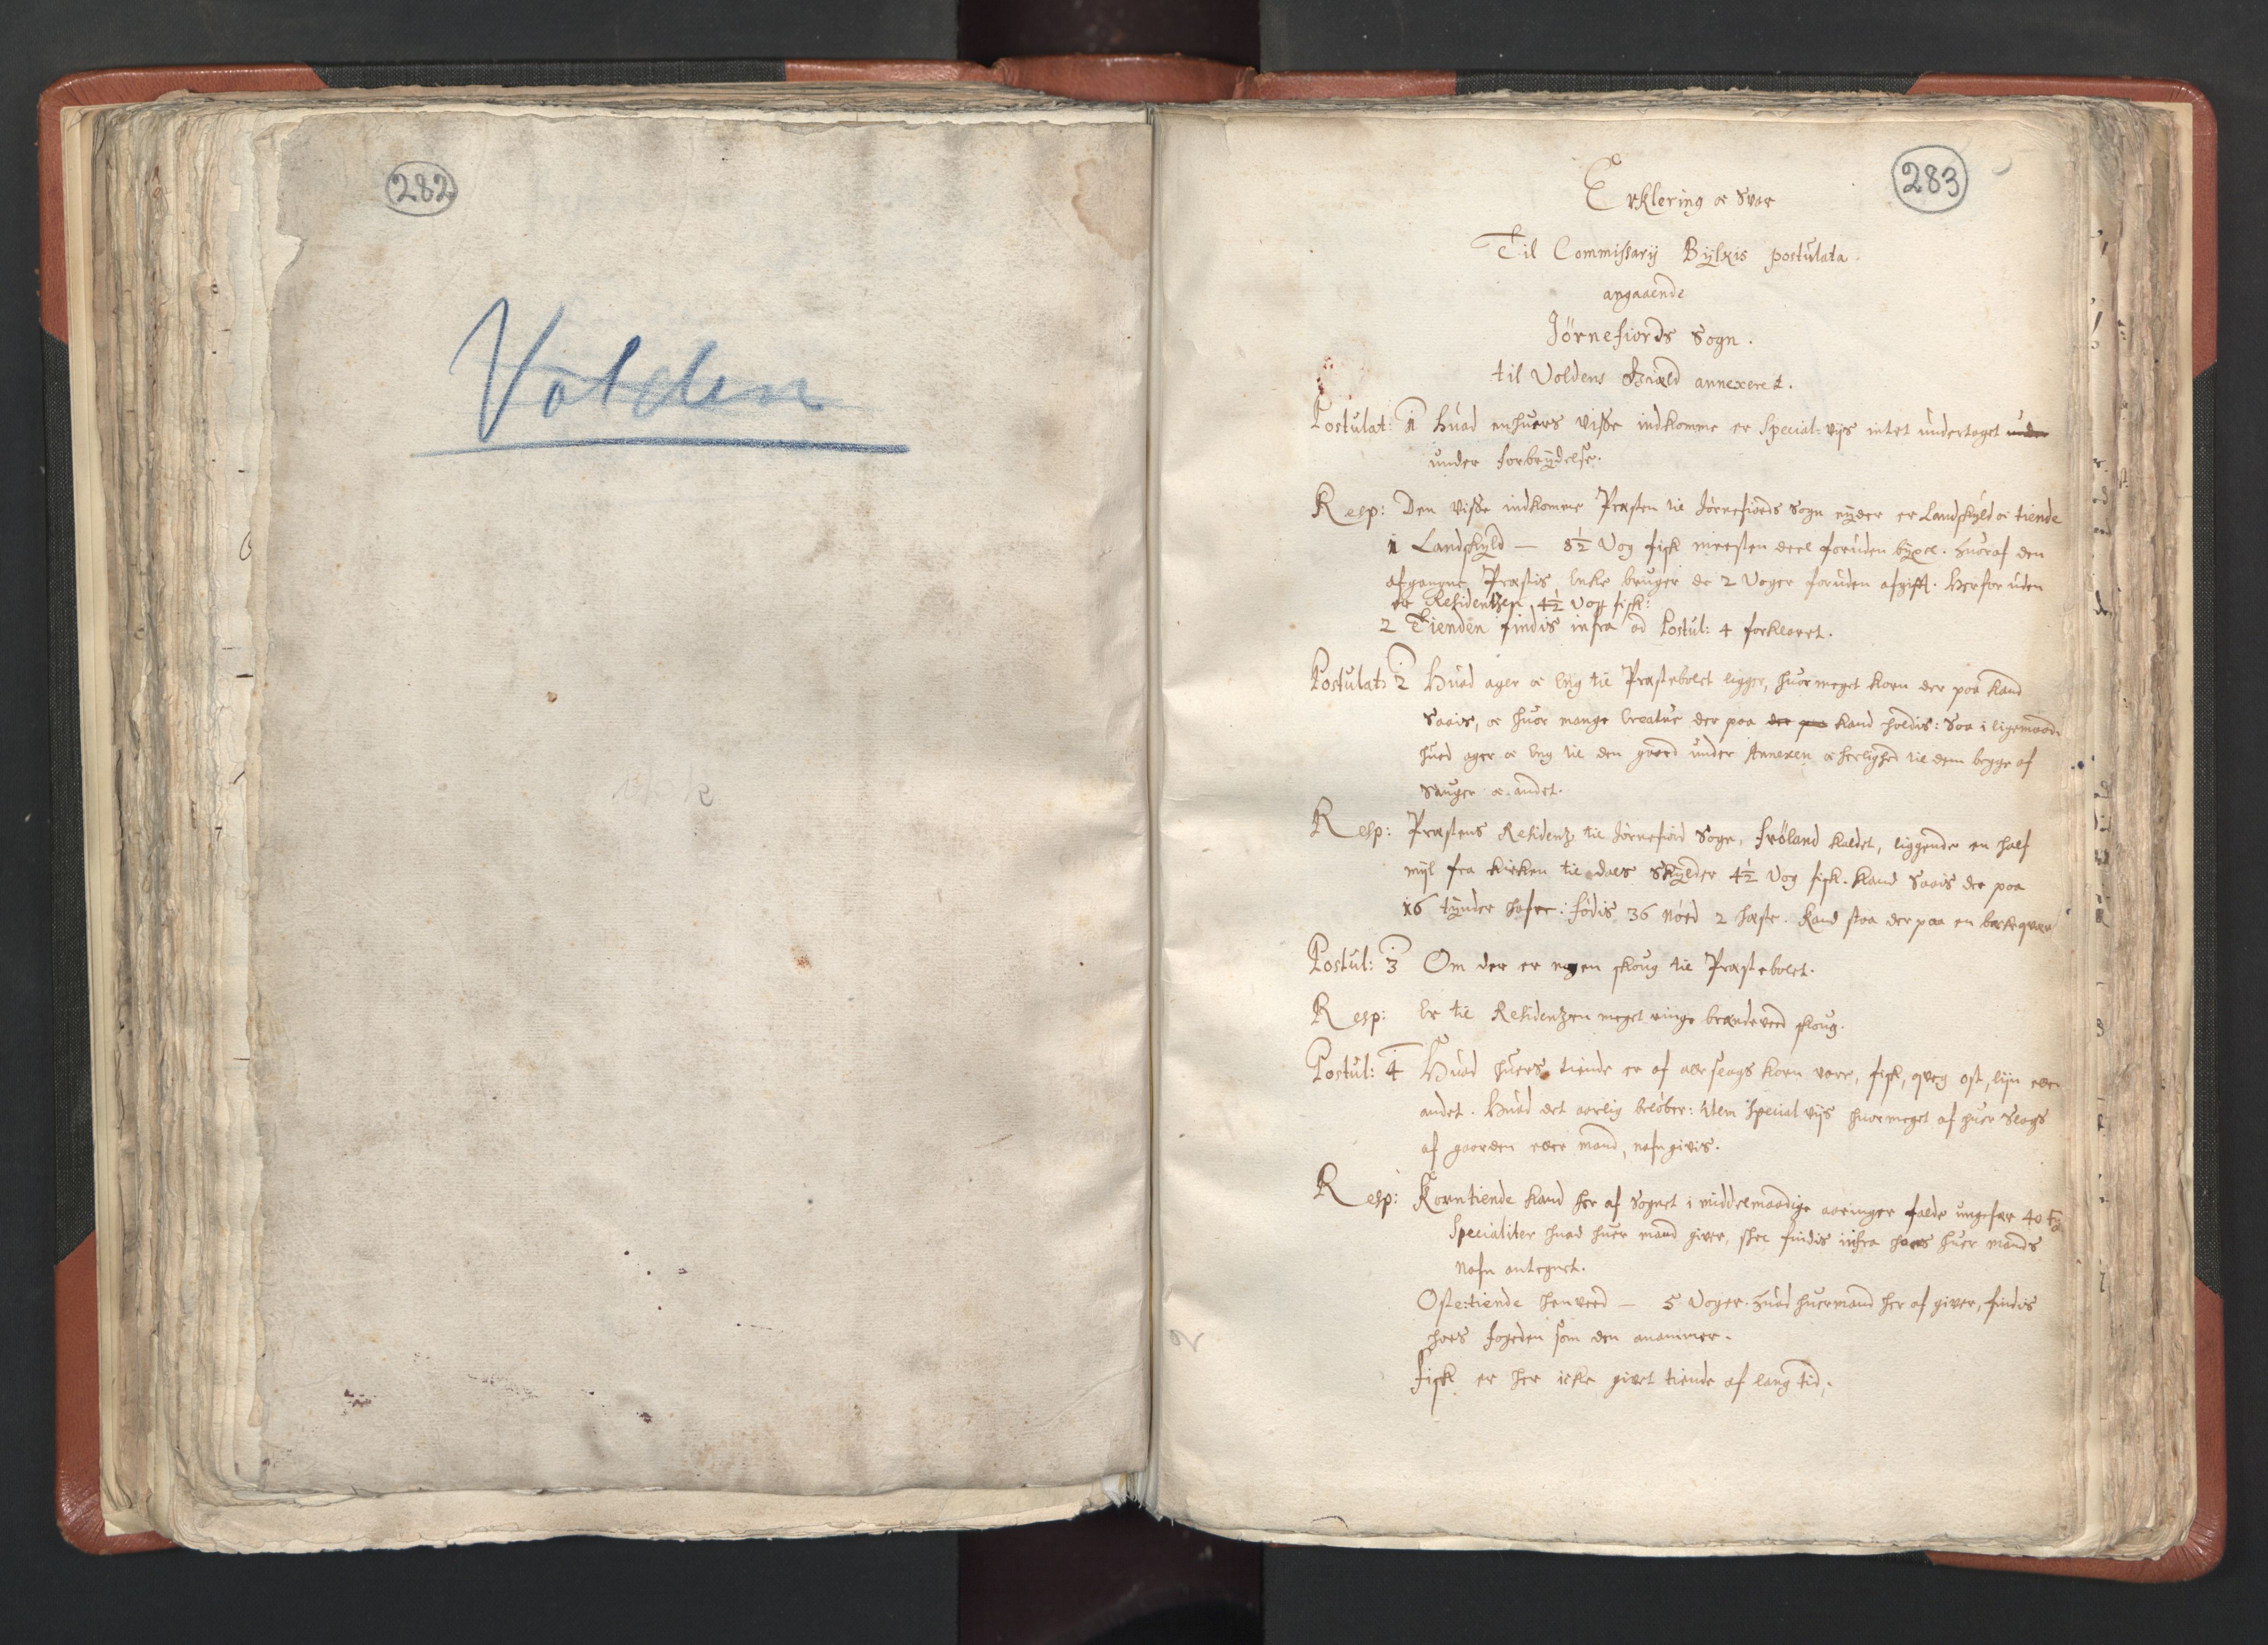 282
Volden
283
Erklering oc Svar
Til Commissarij Bÿlkis postulata
angaaende
Jørnefiords Sogn.
til Voldens Gield annexeret.
Postulat: 1 Huad enhuers visse indkomme er Special: vijs intet undertaget under
under forbrÿdelse.
Resp: Den visse indkomme Præsten til Jørnefiords Sogn nÿder er Landskÿld oc tiende
1 Landskÿld — 8½ Vog fisk meesten deel foruden bÿxel. Huoraf den
afgangne Præstis Enke bruger de 2 Voger foruden afgifft. Herforuden
er Residentzen 4½ Vog fisk:
2 Tienden findis infra ad Postul: 4 forklaret.
Postulat: 2 Huad ager oc Eng til Præstebolet ligger, huormeget korn der paa kand
Saais, oc huor mange Creatur der paa der paa kand holdis: Saa i ligemaade
huad ager oc Eng til den gaard under Annexen oc herlighed til dem begge af
Sauger oc andet.
Resp: Præstens Residentz til Jørnefiord Sogn, Frøland kaldet, liggende en half
mijl fra kirken til dals Skÿlder 4½ Vog fisk. Kand Saais der paa
16 tÿnder hafre: fødis 36 Nød 2 heste. Kand staa der paa en beckeqvern
Postul: 3 Om der er nogen skoug til Præstebolet.
Resp: Er til Residentzen meget ringe brændeveed skoug.
Postul: 4 Huad huers tiende er af alle slags korn vare, fisk, qveg ost, lijn eller
andet. Huad det aarlig beløber: Item Special vijs huormeget af huer Slags
af gaarden eller mand, nafngivis.
Resp: Korntiende kand her af Sognet i middelmaadige aaringer falde ungefær 40 tø
Specialiter huad huer mand giver, skal findis infra hoes huer mands
Nafn antegnet.
Ostetiende henved — 5 Voger. Huad huermand her af giver, findis
hoes fogeden som den anammer.
Fisk er her icke givet tiende af lang tid.